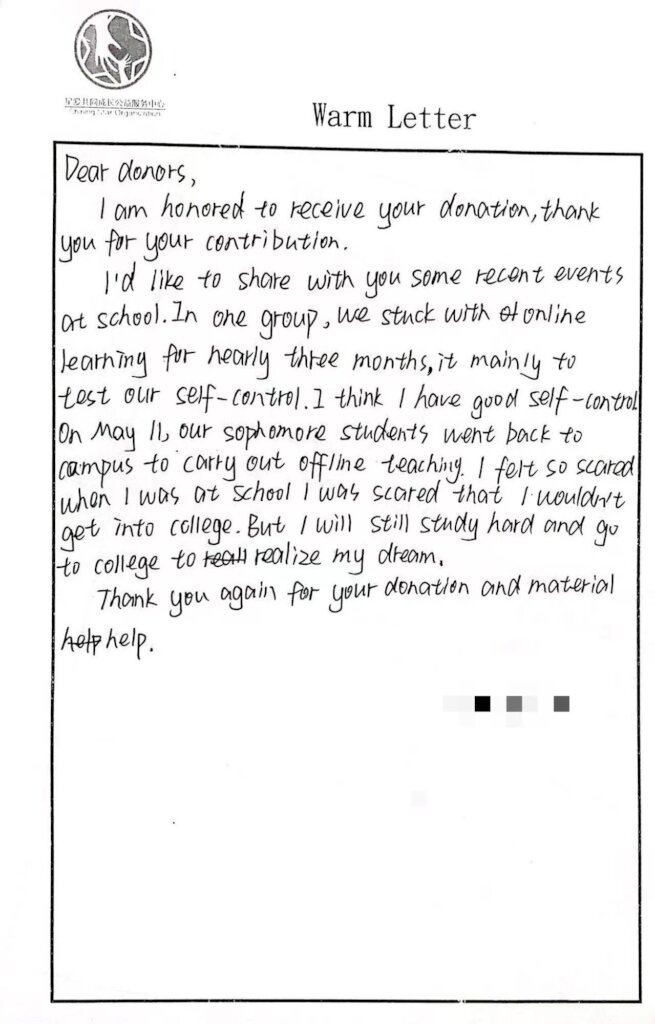 星爱共同成长公益服务中心
Shining Star Organization
Warm Letter
Dear donors,
I am honored to receive your donation, thank
you for your contribution.
I'd like to share with you some recent events
at school. In one group, we stuck with online
learning for nearly three months, it mainly to
test our self-control. I think I have good self-control
On May 11, our sophomore students went back to
campus to carry out offline teaching. I felt so scared
when I was at school I was scared that I wouldn't
get into college. But I will still study hard and go
to college to realize my dream.
Thank you again for your donation and material
help.